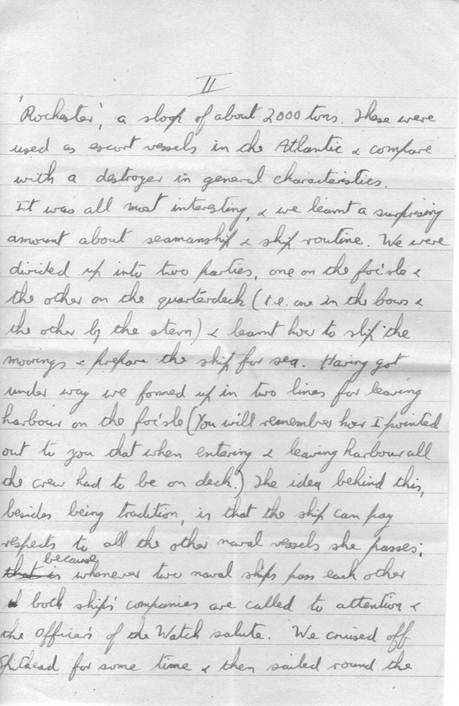 II
'Rochester', a sloop of about 2000 tons. These were
used as escort vessels in the Atlantic & compare
with a destroyer in general characteristics.
It was all most interesting, & we learnt a surprising
amount about seamanship & ship routine. We were
divided up into two parties, one on the foc'sle &
the other on the quarterdeck (i.e. one in the bows &
the other by the stern) & learnt how to slip the
moorings & prepare the ship for sea. Having got
under way we formed up in two lines for leaving
harbour on the foc'sle (You will remember how I pointed
out to you that when entering & leaving harbour all
the crew had to be on deck.) The idea behind this,
besides being tradition, is that the ship can pay
respects to all the other naval vessels she passes;
that is because whenever two naval ships pass each other
both ships' companies are called to attention &
the Officers of the Watch salute. We cruised off
Spithead for some time & then sailed round the